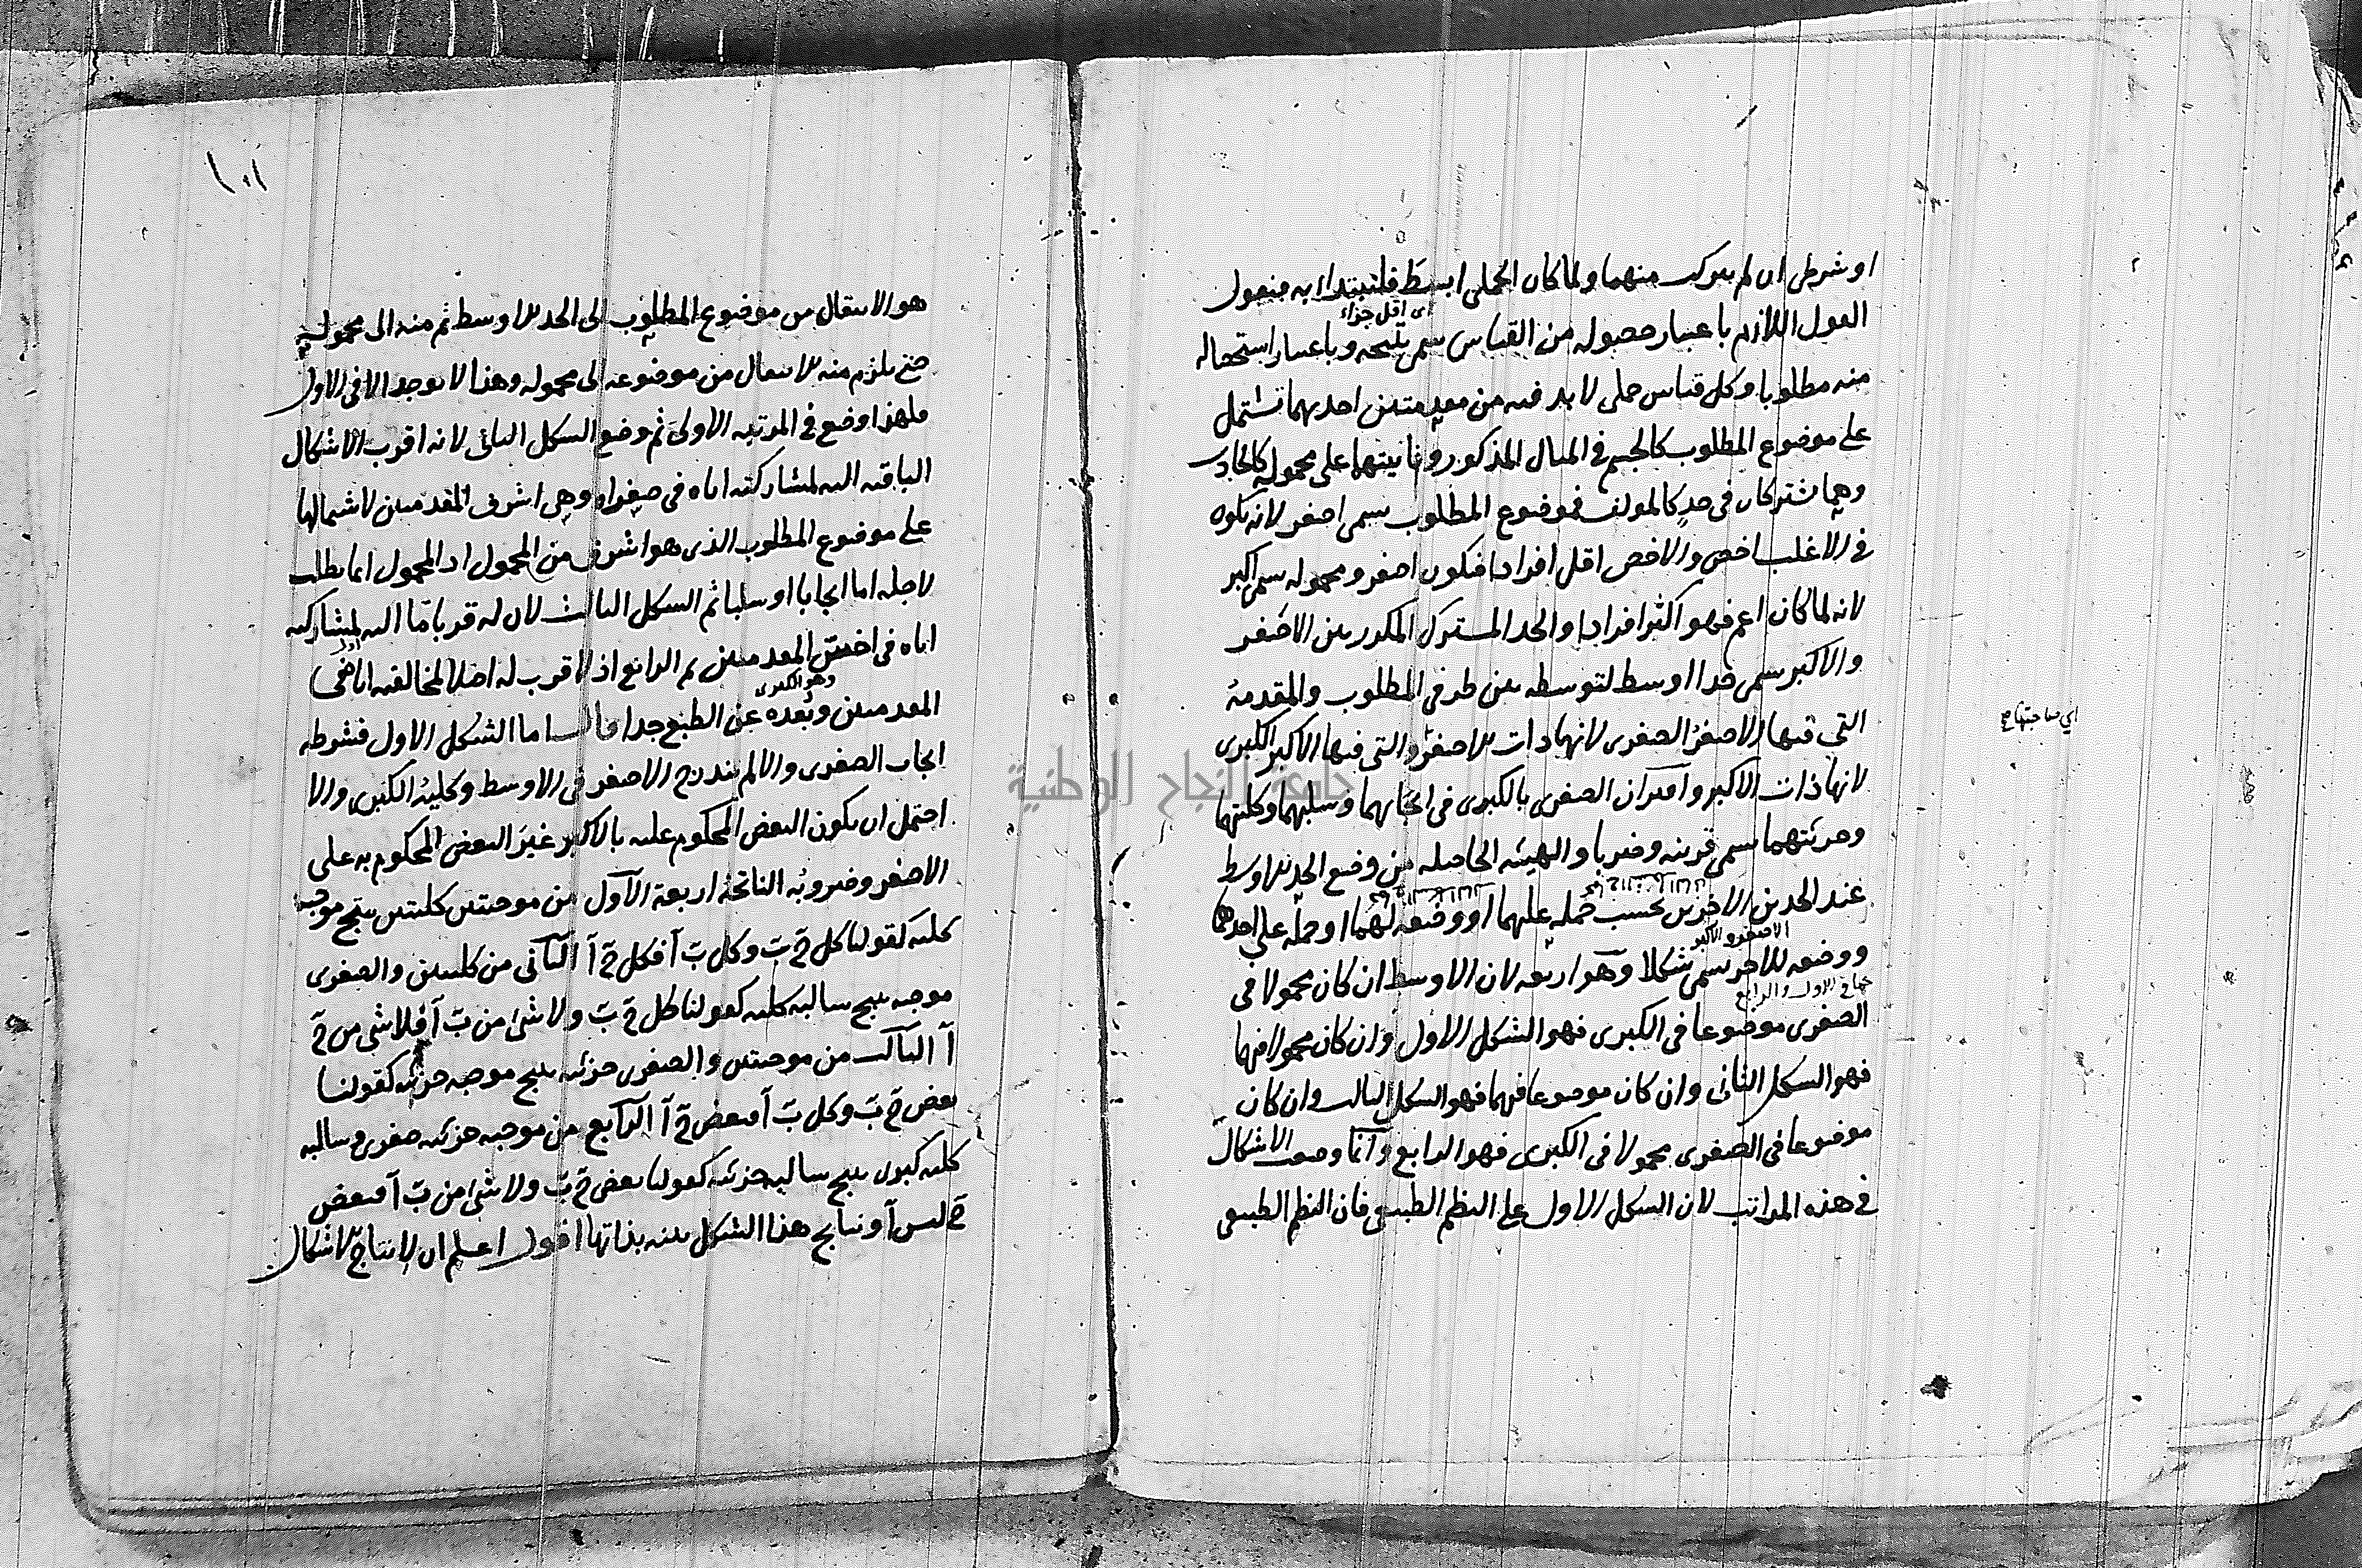 او شرطي ان لم يتركب منهما ولما كان الحملي ابسط فلنبتدا به فنقول
اى اقل جزاء
القول اللازم باعتبار حصوله من القياس يسمى نتيجة وباعتبار استحصاله
منه مطلوبا وكل قياس حملى لا بد فيه من مقدمتين احديهما تشتمل
على موضوع المطلوب كالجسم في المثال المذكور وثانيتهما على محموله كالحادث
وهما تشتركان في حد كالمولف فموضوع المطلوب يسمى اصغر لانه يكون
في الاغلب اخص والاخص اقل افرادا فيكون اصغر ومحموله يسمى اكبر
لانه لما كان اعم فهو اكثر افرادا والحد المشترك المكرر بين الاصغر
والاكبر يسمى حدا اوسط لتوسطه بين طرفي المطلوب والمقدمة
التي فيها الاصغر الصغرى لانها ذات الاصغر والتي فيها الاكبر الكبرى
اي صاحبتها
لانها ذات الاكبر واقتران الصغرى بالكبرى في ايجابهما وسلبهما وكليتهما
وجزئيتهما يسمى قرينة وضربا والهيئة الحاصلة من وضع الحد الاوسط
عند الحدين الاخرين بحسب حمله عليهما او وضعه لهما او حمله على احدهما
الاصغر والاكبر
ووضعه للاخر يسمى شكلا وهو اربعة لان الاوسط ان كان محمولا في
كما في الاول والرابع
الصغرى موضوعا في الكبرى فهو الشكل الاول وان كان محمولا فيهما
فهو الشكل الثانى وان كان موضوعا فيهما فهو الشكل الثالث وان كان
موضوعا في الصغرى محمولا في الكبرى فهو الرابع وانما وضعت الاشكال
في هذه المراتب لان الشكل الاول على النظم الطبيعي فان النظم الطبيعي
١٠١
هو الانتقال من موضوع المطلوب الى الحد الاوسط ثم منه الى محموله
حتى يلزم منه الانتقال من موضوعه الى محموله وهذا لا يوجد الا في الاول
فلهذا وضع في المرتبة الاولى ثم وضع الشكل الثانى لانه اقرب الاشكال
الباقية اليه لمشاركته اياه في صغراه وهي اشرف المقدمتين لاشتمالها
على موضوع المطلوب الذى هو اشرف من المحمول اذ المحمول انما يطلب
لاجله اما ايجابا او سلبا ثم الشكل الثالث لان له قربا ما اليه لمشاركته
اياه في اخس المقدمتين ثم الرابع اذ لا قرب له اصلا لمخالفته اياه في
وهو الكبرى
المقدمتين وبعده عن الطبع جدا قال اما الشكل الاول فشرطه
ايجاب الصغرى والا لم يندرج الاصغر في الاوسط وكلية الكبرى والا
احتمل ان يكون البعض المحكوم عليه بالاكبر غير البعض المحكوم به على
الاصغر وضروبه الناتجة اربعة الاول من موجبتين كليتين ينتج موجبة
كلية كقولنا كل ج ب وكل ب ا فكل ج ا الثانى من كليتين والصغرى
موجبة ينتج سالبة كلية كقولنا كل ج ب ولا شئ من ب ا فلا شئ من ج
ا الثالث من موجبتين والصغرى جزئية ينتج موجبة جزئية كقولنا
بعض ج ب وكل ب ا فبعض ج ا الرابع من موجبة جزئية صغرى وسالبة
كلية كبرى ينتج سالبة جزئية كقولنا بعض ج ب ولا شئ من ب ا فبعض
ج ليس ا ونتايج هذا الشكل بينة بذاتها اقول اعلم ان لانتاج الاشكال
جامعة النجاح الوطنية